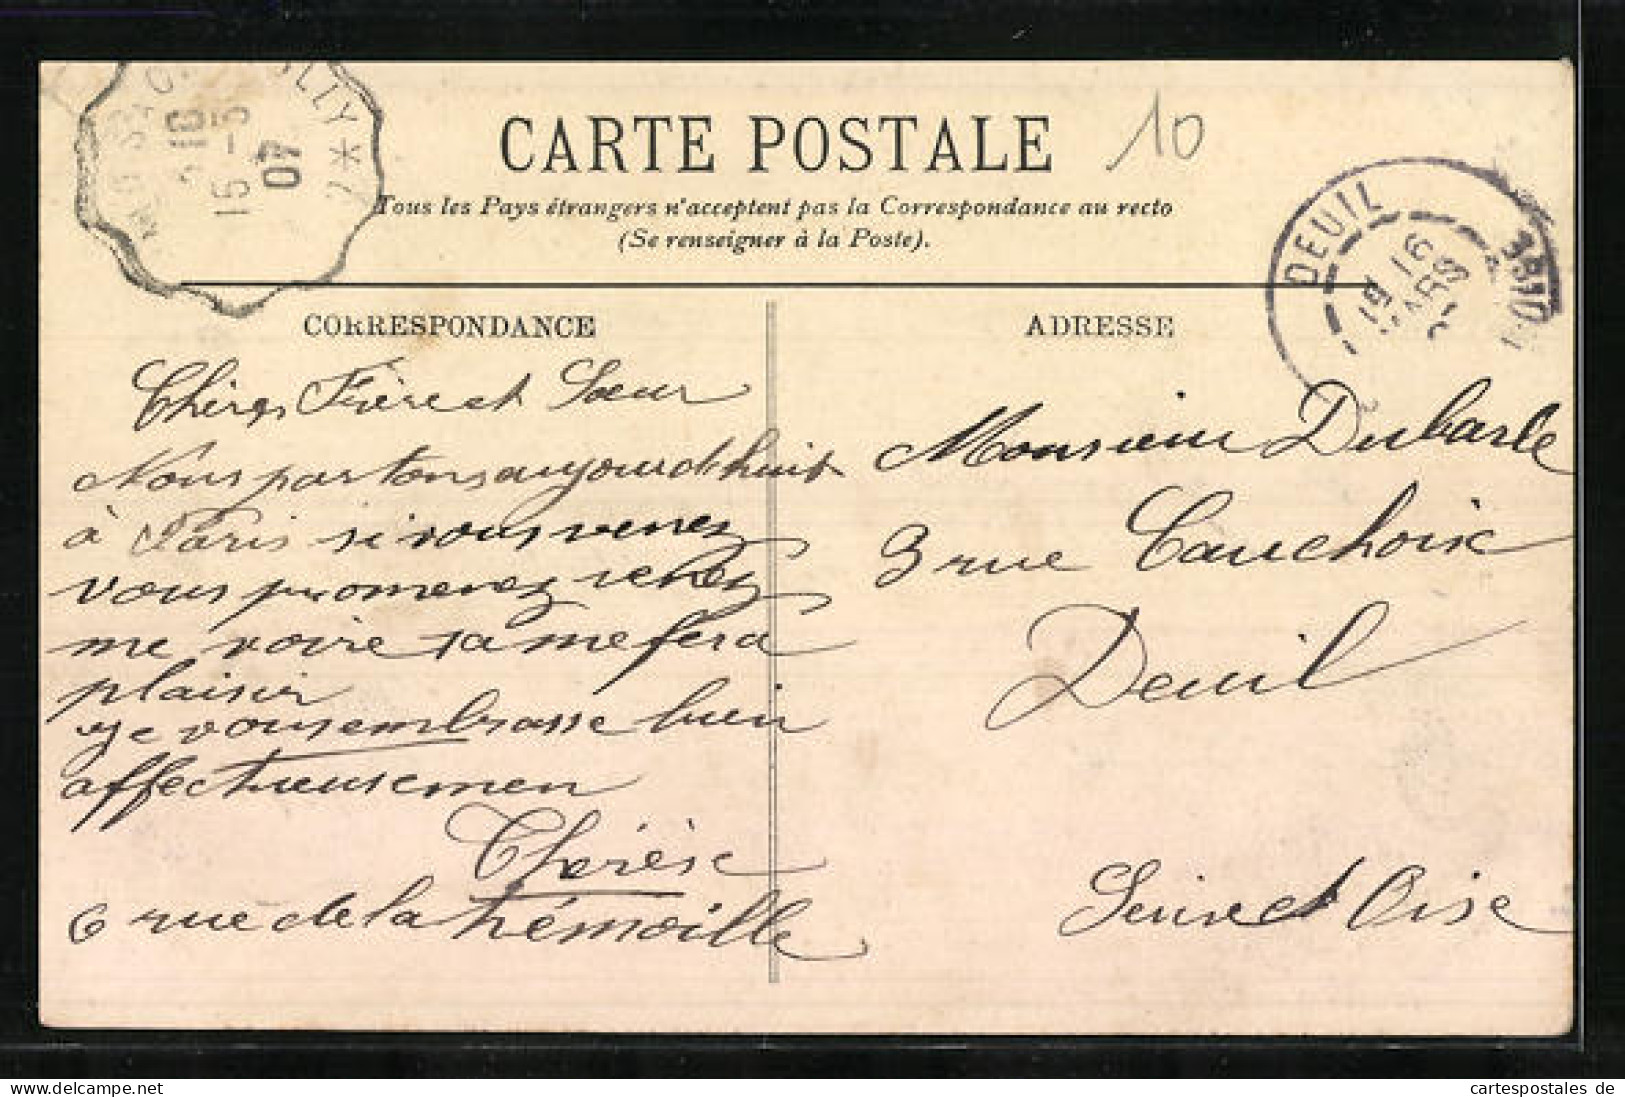 CARTE POSTALE
10
Tous les Pays étrangers n'acceptent pas la Correspondance au recto
(Se renseigner à la Poste).
15-3
07
DEUIL
16
MARS
CORRESPONDANCE
Chères Frère et Sœur
Nous partons aujourd'huit
à Paris si vous venez
vous promenez venez
me voire sa me fera
plaisir
je vous embrasse bien
affectueusemen
Thérèse
6 rue de la trémoille
ADRESSE
Monsieur Dubarle
3 rue Cauchoix
Deuil
Seine et Oise
cartespostales de